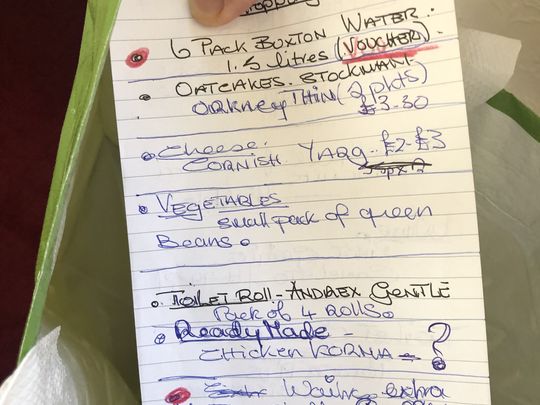 6 PACK BUXTON WATER.
1.5 litres (VOUCHER).
OATCAKES. STOCKMAN
ORKNEY THIN (2 pkts)
£3-30
Cheese.
CORNISH YARG. £2-£3
VEGETABLES
small pack of green
Beans.
TOILET ROLL - ANDREX GENTLE
Pack of 4 ROLLS.
Ready Made -
CHICKEN KORMA - ?
extra